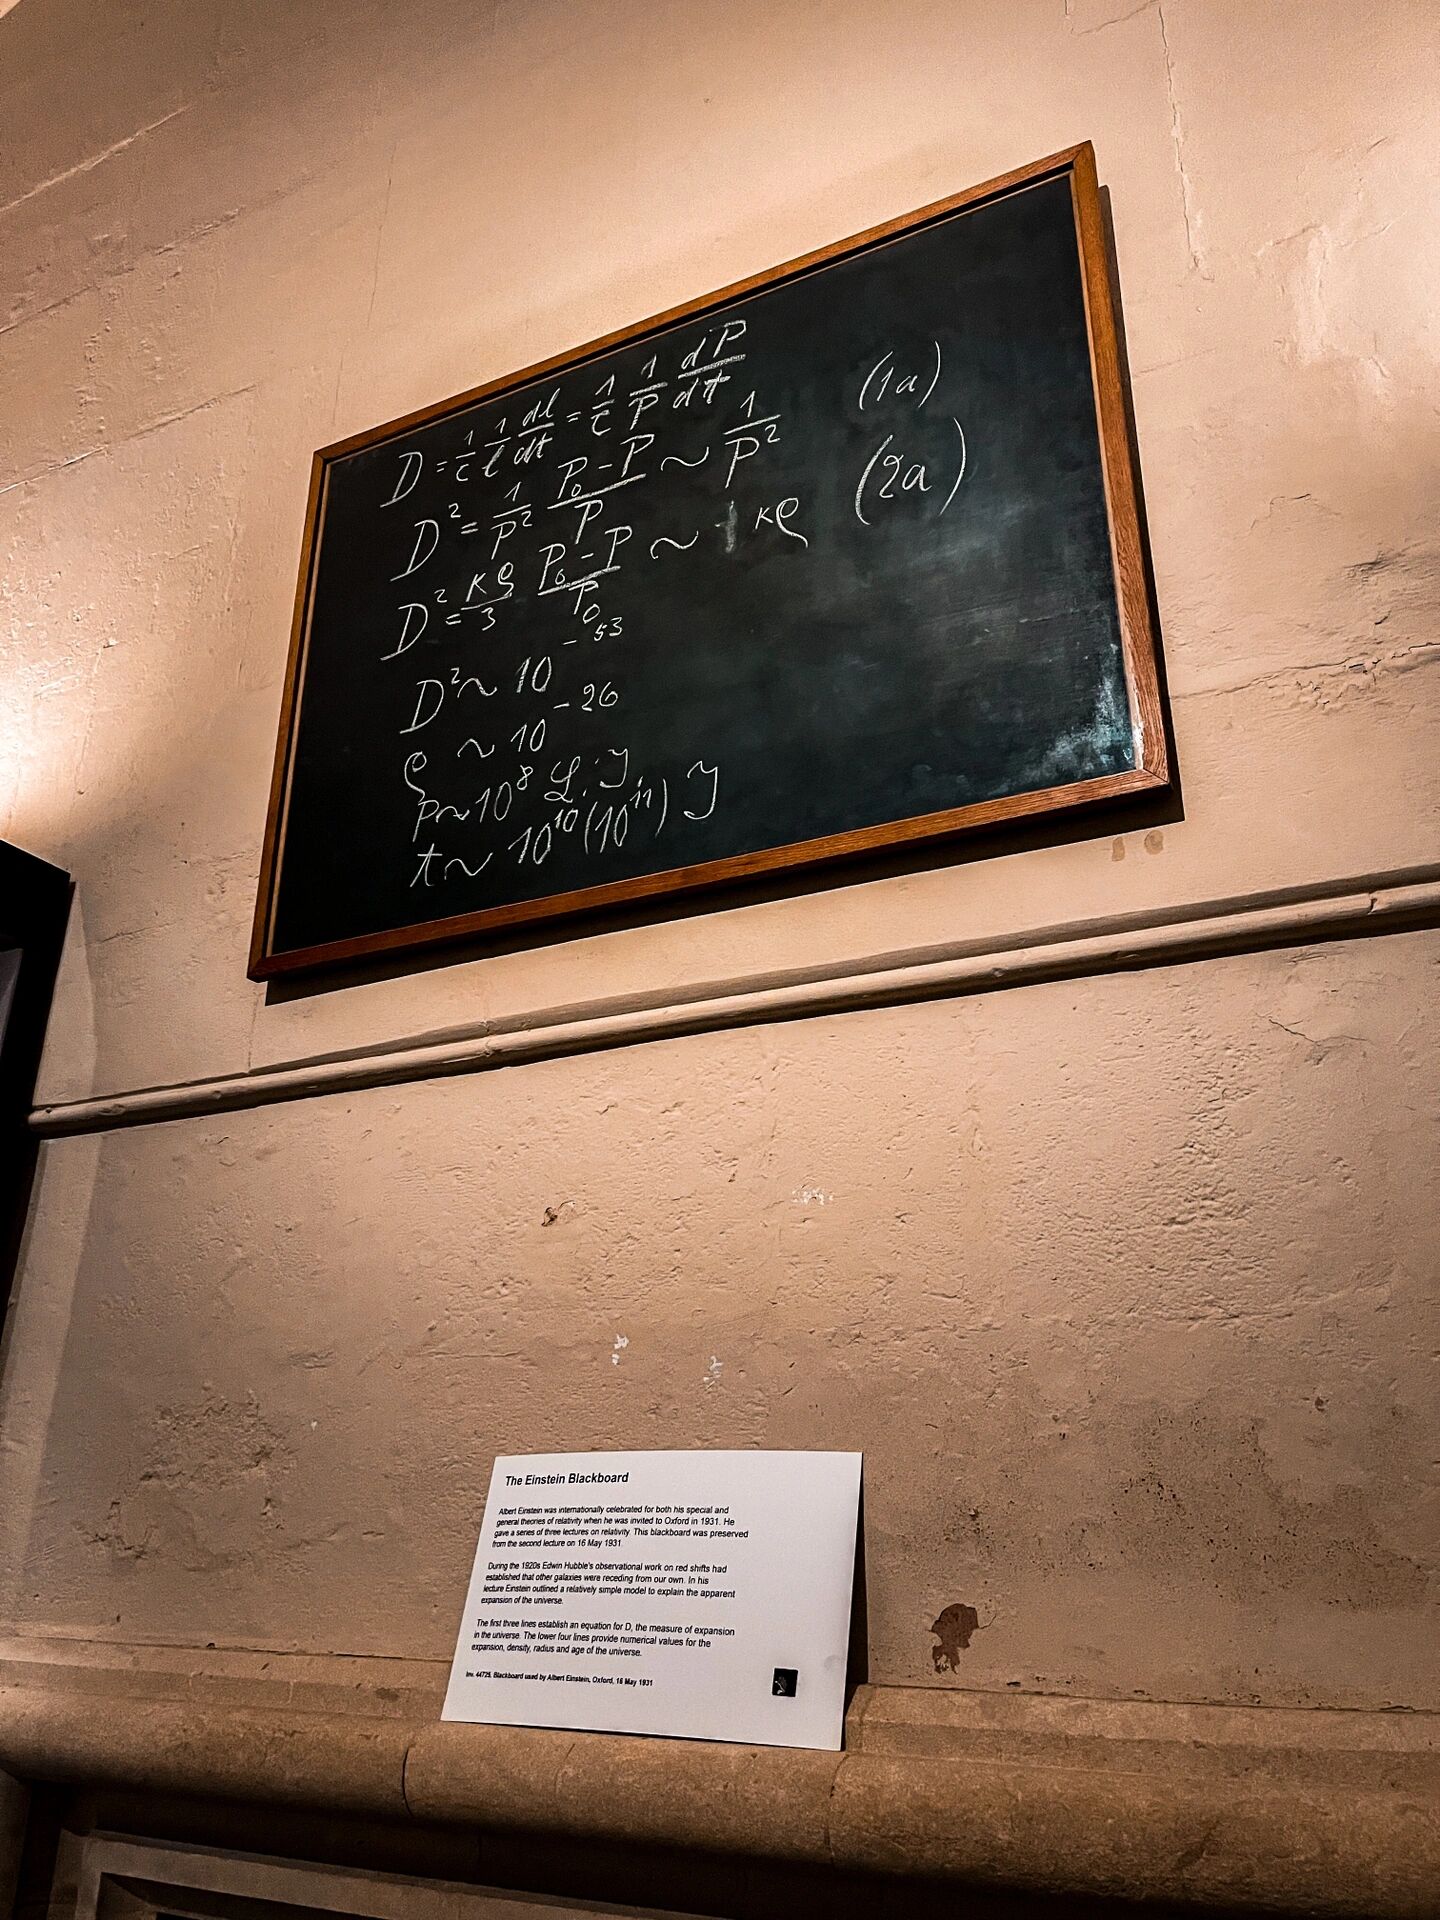 D = 1/c 1/l dl/dt = 1/c 1/P dP/dt
D² = 1/P² P₀-P/P ~ 1/P² (1a)
D² = κρ/3 P₀-P/P₀ ~ κρ (2a)
D² ~ 10⁻⁵³
ρ ~ 10⁻²⁶
P ~ 10⁸ L.J.
t ~ 10¹⁰(10¹¹) J
The Einstein Blackboard
Albert Einstein was internationally celebrated for both his special and
general theories of relativity when he was invited to Oxford in 1931. He
gave a series of three lectures on relativity. This blackboard was preserved
from the second lecture on 16 May 1931.
During the 1920s Edwin Hubble's observational work on red shifts had
established that other galaxies were receding from our own. In his
lecture Einstein outlined a relatively simple model to explain the apparent
expansion of the universe.
The first three lines establish an equation for D, the measure of expansion
in the universe. The lower four lines provide numerical values for the
expansion, density, radius and age of the universe.
Inv. 44725. Blackboard used by Albert Einstein, Oxford, 16 May 1931